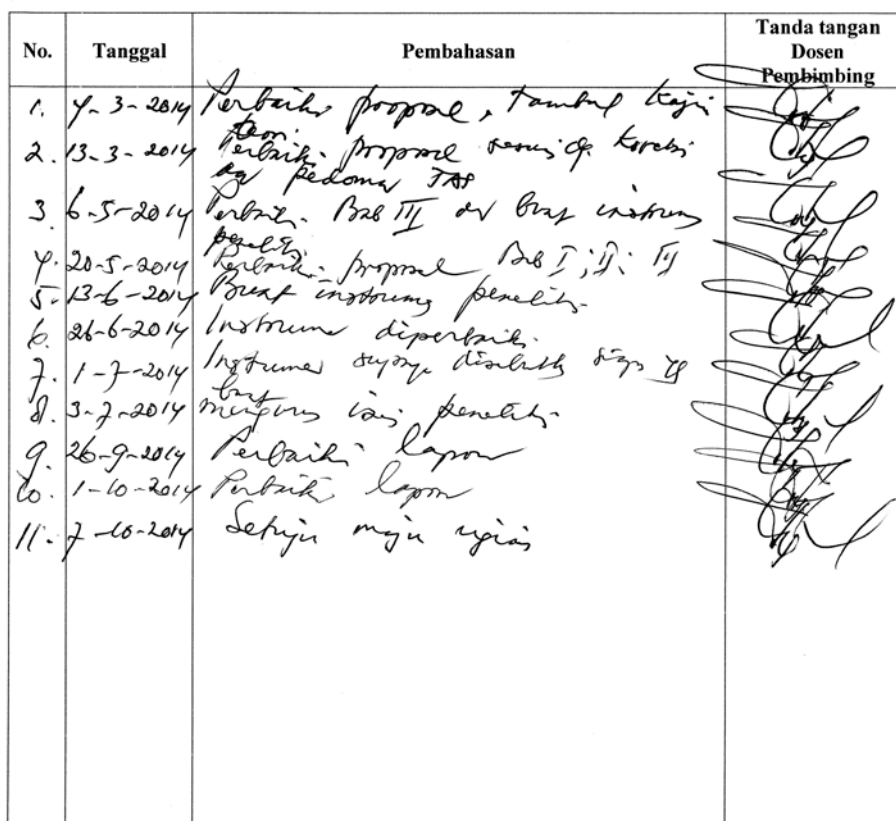 No. Tanggal Pembahasan Tanda tangan
Dosen
Pembimbing
1. 4-3-2014 Perbaiki proposal, tambah kaji
teori.
2. 13-3-2014 Perbaiki proposal sesuai dg koreksi
pedoman TAS
3. 6-5-2014 Perbaiki Bab III buat instrumen
peneliti
4. 20-5-2014 Perbaiki proposal Bab I; II; III
5. 13-6-2014 Buat instrumen peneliti
6. 26-6-2014 Instrumen diperbaiki
7. 1-7-2014 Instrumen supaya yg
buat
8. 3-7-2014 mengurus izin peneliti
9. 26-9-2014 Perbaiki laporan
10. 1-10-2014 Perbaiki laporan
11. 7-10-2014 Setuju maju ujian